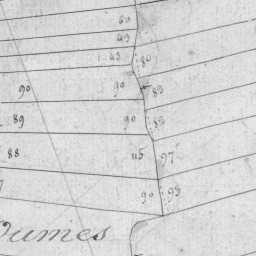 60
49
43 80
90 90 83
89 90 85
88 115 97
90 93
Dumes